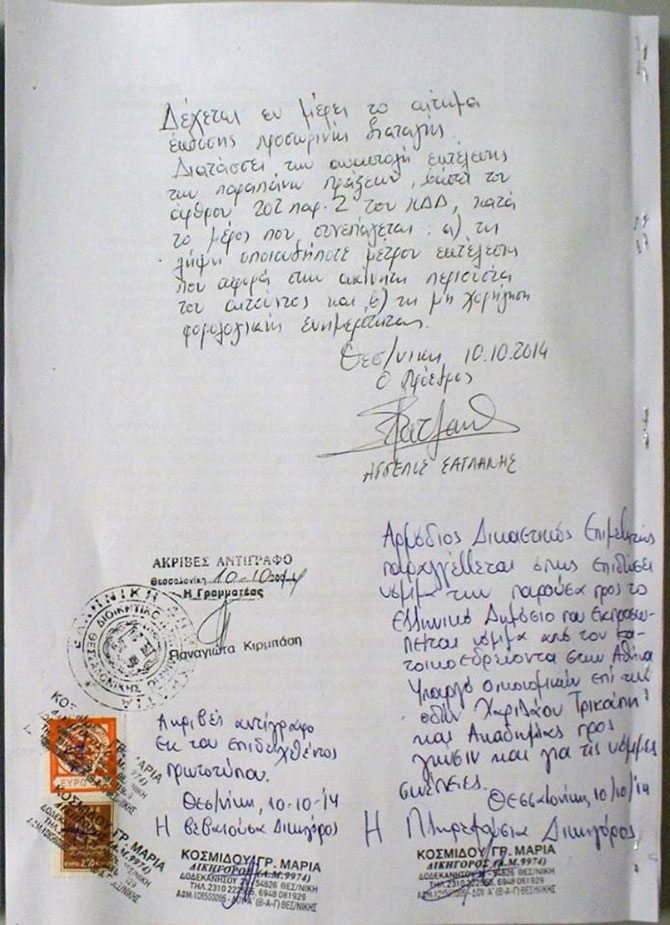 Δέχεται εν μέρει το αίτημα
έκδοσης προσωρινής διαταγής.
Διατάσσει την αναστολή εκτέλεσης
των παραπάνω πράξεων, κατά του
άρθρου 202 παρ. 2 του ΚΔΔ, κατά
το μέρος που συνεπάγεται: α) τη
λήψη οποιουδήποτε μέτρου εκτέλεσης
που αφορά στην ακίνητη περιουσία
του αιτούντος και β) τη μη χορήγηση
φορολογικής ενημερότητας.
Θεσ/νικη, 10.10.2014
Ο Πρόεδρος
ΑΓΓΕΛΙΣ
ΑΚΡΙΒΕΣ ΑΝΤΙΓΡΑΦΟ
Θεσσαλονίκη 10-10-2014
Η Γραμματέας
Παναγιώτα Κιρμπάση
Αρμόδιος Δικαστικός Επιμελητής
παραγγέλλεται όπως επιδώσει
νόμιμα την παρούσα προς το
Ελληνικό Δημόσιο που εκπροσω-
πείται νόμιμα από τον κα-
τοικοεδρεύοντα στην Αθήνα
Υπουργό Οικονομικών επί της
οδού Χαριλάου Τρικούπη
και Ακαδημίας προς
γνώσιν και για τις νόμιμες
συνέπειες.
Θεσσαλονίκη, 10/10/14
Η Πληρεξούσια Δικηγόρος
ΚΟΣΜΙΔΟΥ ΓΡ. ΜΑΡΙΑ
ΔΙΚΗΓΟΡΟΣ (Α.Μ. 9974)
ΔΩΔΕΚΑΝΗΣΟΥ 54626 ΘΕΣ/ΝΙΚΗ
6948 081929
Ακριβές αντίγραφο
εκ του επιδειχθέντος
πρωτοτύπου.
Θεσ/νίκη, 10-10-14
Η βεβαιούσα Δικηγόρος
ΚΟΣΜΙΔΟΥ ΓΡ. ΜΑΡΙΑ
ΔΙΚΗΓΟΡΟΣ (Α.Μ. 9974)
ΔΩΔΕΚΑΝΗΣΟΥ 54626 ΘΕΣ/ΝΙΚΗ
ΤΗΛ. 2310 6948 081929
ΕΥΡΩ